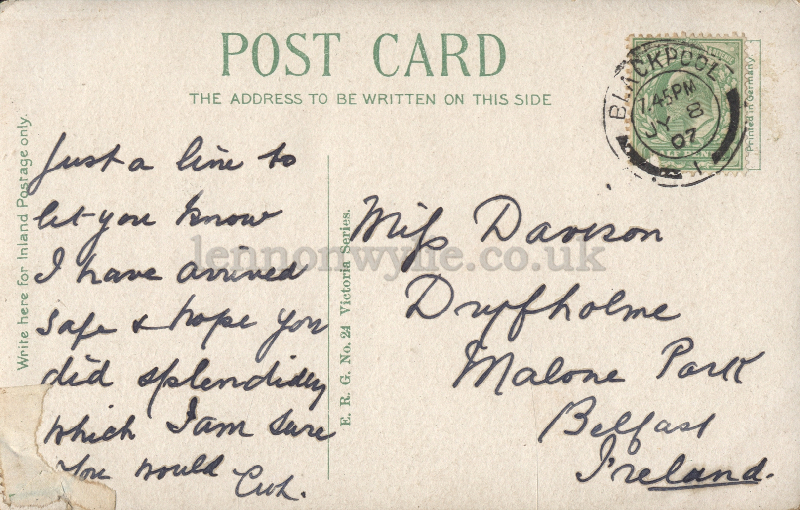 POST CARD
THE ADDRESS TO BE WRITTEN ON THIS SIDE
Write here for Inland Postage only.
Just a line to
let you know
I have arrived
safe & hope you
did splendidly
which I am sure
You would
E. R. G. No. 24 Victoria Series.
BLACKPOOL
7.45PM
JY 8
07
1
Printed in Germany.
Miss Davison
Malone Park
Belfast
Ireland.
lennonwylie.co.uk